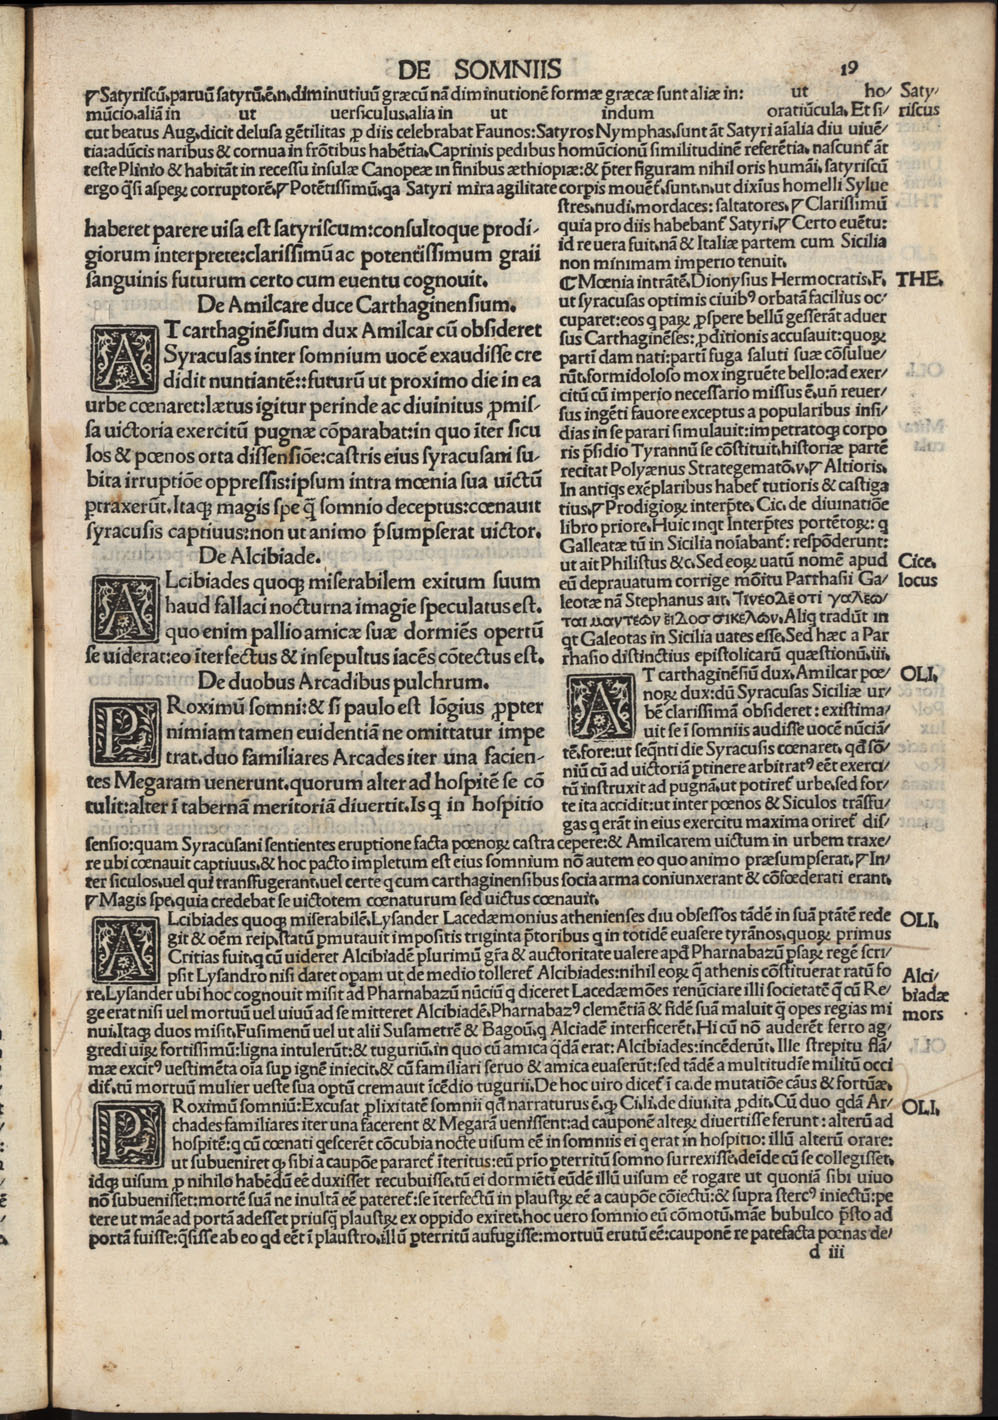 DE SOMNIIS
19
⁋Satyriscũ.paruũ satyrũ.ẽ.n.diminutiuũ græcũ nã diminutionẽ formæ græcæ sunt aliæ in: ut ho/
mũcio.aliã in ut uersiculus.alia in ut indum oratiũcula.Et si/
Saty/
riscus
cut beatus Aug.dicit delusa gẽtilitas ꝓ diis celebrabat Faunos:Satyros Nymphas.sunt ãt Satyri aĩalia diu uiuẽ/
tia:adũcis naribus & cornua in frõtibus habẽtia.Caprinis pedibus homũcionũ similitudinẽ referẽtia.nascunt̃ ãt
teste Plinio & habitãt in recessu insulæ Canopeæ in finibus æthiopiæ:& p̃ter figuram nihil oris humãi.satyriscũ
ergo q̃si asperꝝ corruptorẽ.⁋Potẽtissimũ.qa Satyri mira agilitate corpis mouẽt̃.sunt.n.ut diximus homelli Sylue
stres.nudi.mordaces: saltatores.⁋Clarissimũ
quia pro diis habebant̃ Satyri.⁋Certo euẽtu:
id re uera fuit.nã & Italiæ partem cum Sicilia
non minimam imperio tenuit.
haberet parere uisa est satyriscum:consultoque prodi/
giorum interprete:clarissimũ ac potentissimum graii
sanguinis futurum certo cum euentu cognouit.
De Amilcare duce Carthaginensium.
AT carthaginẽsium dux Amilcar cũ obsideret
Syracusas inter somnium uocẽ exaudisse cre
didit nuntiantẽ::futurũ ut proximo die in ea
urbe cœnaret:lætus igitur perinde ac diuinitus ꝓmis/
sa uictoria exercitũ pugnæ cõparabat:in quo ĩter sicu
los & pœnos orta dissensiõe:castris eius syracusani su/
bita irruptiõe oppressis:ipsum intra mœnia sua uictũ
ptraxerũt.Itaqꝫ magis spe q̃ somnio deceptus:cœnauit
syracusis captiuus:non ut animo p̃sumpserat uictor.
De Alcibiade.
ALcibiades quoqꝫ miserabilem exitum suum
haud fallaci nocturna imagĩe speculatus est.
quo enim pallio amicæ suæ dormiẽs opertũ
se uiderat:eo ĩterfectus & insepultus iacẽs cõtectus est.
De duobus Arcadibus pulchrum.
PRoximũ somni:& si paulo est lõgius ꝓpter
nimiam tamen euidentiã ne omittatur impe
trat.duo familiares Arcades iter una facien/
tes Megaram uenerunt.quorum alter ad hospitẽ se cõ
tulit:alter ĩ tabernã meritoriã diuertit.Is q̃ in hospitio
⁌Mœnia intrãtẽ.Dionysius Hermocratis.F.
ut syracusas optimis ciuibꝰ orbatã facilius oc/
cuparet:eos q parꝝ ꝓspere bellũ gesserãt aduer
sus Carthaginẽses:ꝓditionis accusauit:quoꝝ
partĩ dam nati:partĩ fuga saluti suæ cõsulue/
rũt.formidoloso mox ingruẽte bello:ad exer/
citũ cũ imperio necessario missus ẽ.uñ reuer/
sus ingẽti fauore exceptus a popularibus insi/
dias in se parari simulauit:impetratoqꝫ corpo
ris p̃sidio Tyrannũ se cõstituit.historiæ partẽ
recitat Polyænus Strategematõ.v.⁋Altioris.
In antiqs exẽplaribus habet̃ tutioris & castiga
tius.⁋Prodigioꝝ interp̃te.Cic.de diuinatiõe
libro priore.Huic inqt Interp̃tes portẽtoꝝ: q
Galleatæ tũ in Sicilia noĩabant̃: respõderunt:
ut ait Philistus &c.Sed eoꝝ uatũ nomẽ apud
eũ deprauatum corrige mõitu Parrhasii Ga/
leotæ nã Stephanus ait. Τινεσ δὲ ὅτι γαλεω/
ται μαντεων εἶδοσ σικελων.Aliq tradũt in
qt Galeotas in Sicilia uates esse.Sed hæc a Par
rhasio distinctius epistolicarũ quæstionũ.iii.
THE.
Cice.
locus
AT carthaginẽsiũ dux.Amilcar pœ/
noꝝ dux:dũ Syracusas Siciliæ ur/
bẽ clarissimã obsideret: existima/
uit se ĩ somniis audisse uocẽ nũciã/
tẽ.fore:ut seqñti die Syracusis cœnaret.qd̃ sõ/
niũ cũ ad uictoriã ptinere arbitratꝰ eẽt exerci/
tũ instruxit ad pugnã.ut potiret̃ urbe.sed for/
te ita accidit:ut inter pœnos & Siculos trãsfu/
gas q erãt in eius exercitu maxima oriret̃ dis/
OLI.
sensio:quam Syracusani sentientes eruptione facta pœnoꝝ castra cepere:& Amilcarem uictum in urbem traxe/
re ubi cœnauit captiuus.& hoc pacto impletum est eius somnium nõ autem eo quo animo præsumpserat.⁋In/
ter siculos.uel qui transfugerant.uel certe q cum carthaginensibus socia arma coniunxerant & cõfœderati erant.
⁋Magis spe.quia credebat se uictotem cœnaturum sed uictus cœnauit.
ALcibiades quoqꝫ miserabilẽ.Lysander Lacedæmonius athenienses diu obsessos tãdẽ in suã ptãtẽ rede
git & oẽm reip.statũ pmutauit impositis triginta p̃toribus q in totidẽ euasere tyrãnos.quoꝝ primus
Critias fuit.q cũ uideret Alcibiadẽ plurimũ gr̃a & auctoritate ualere apd̃ Pharnabazũ p̃saꝝ regẽ scri/
psit Lysandro nisi daret opam ut de medio tolleret̃ Alcibiades:nihil eoꝝ q̃ athenis cõstituerat ratũ fo
re.Lysander ubi hoc cognouit misit ad Pharnabazũ nũciũ q diceret Lacedæmões renũciare illi societatẽ q̃ cũ Re/
ge erat nisi uel mortuũ uel uiuũ ad se mitteret Alcibiadẽ.Pharnabazꝰ clemẽtiã & fidẽ suã maluit q̃ opes regias mi
nui.Itaqꝫ duos misit.Fusimenũ uel ut alii Susametrẽ & Bagoũ.q Alciadẽ interficerẽt.Hi cũ nõ auderẽt ferro ag/
gredi uirꝝ fortissimũ:ligna intulerũt:& tuguriũ.in quo cũ amica q̃dã erat: Alcibiades:incẽderũt. Ille strepitu flã/
mæ excitꝰ uestimẽta oĩa sup ignẽ iniecit.& cũ familiari seruo & amica euaserũt:sed tãdẽ a multitudĩe militũ occi
dit̃.tũ mortuũ mulier ueste sua optũ cremauit ĩcẽdio tugurii.De hoc uiro dicet̃ ĩ ca.de mutatiõe cãus & fortũæ.
OLI.
Alci/
biadæ
mors
PRoximũ somniũ:Excusat ꝓlixitatẽ somnii qd̃ narraturus ẽ.qꝫ Ci.li.de diui.ita ꝓdit.Cũ duo qdã Ar/
chades familiares iter una facerent & Megarã uenissent:ad cauponẽ alteꝝ diuertisse ferunt: alterũ ad
hospitẽ:q cũ cœnati q̃scerẽt cõcubia nocte uisum eẽ in somniis ei q erat in hospitio: illũ alterũ orare:
ut subueniret qꝫ sibi a caupõe pararet̃ ĩteritus:eũ prĩo pterritũ somno surrexisse.deĩde cũ se collegisset.
idqꝫ uisum ꝓ nihilo habẽdũ eẽ duxisset recubuisse.tũ ei dormiẽti eũdẽ illũ uisum eẽ rogare ut quoniã sibi uiuo
nõ subuenisset:mortẽ suã ne inultã eẽ pateret̃:se ĩterfectũ in plaustꝝ eẽ a caupõe cõiectũ:& supra stercꝰ iniectũ:pe
tere ut mãe ad portã adesset priusq̃ plaustꝝ ex oppido exiret.hoc uero somnio eũ cõmotũ.mãe bubulco p̃sto ad
portã fuisse:q̃sisse ab eo qd eẽt ĩ plaustro.illũ pterritũ aufugisse:mortuũ erutũ eẽ:cauponẽ re patefacta pœnas de/
OLI.
d iii